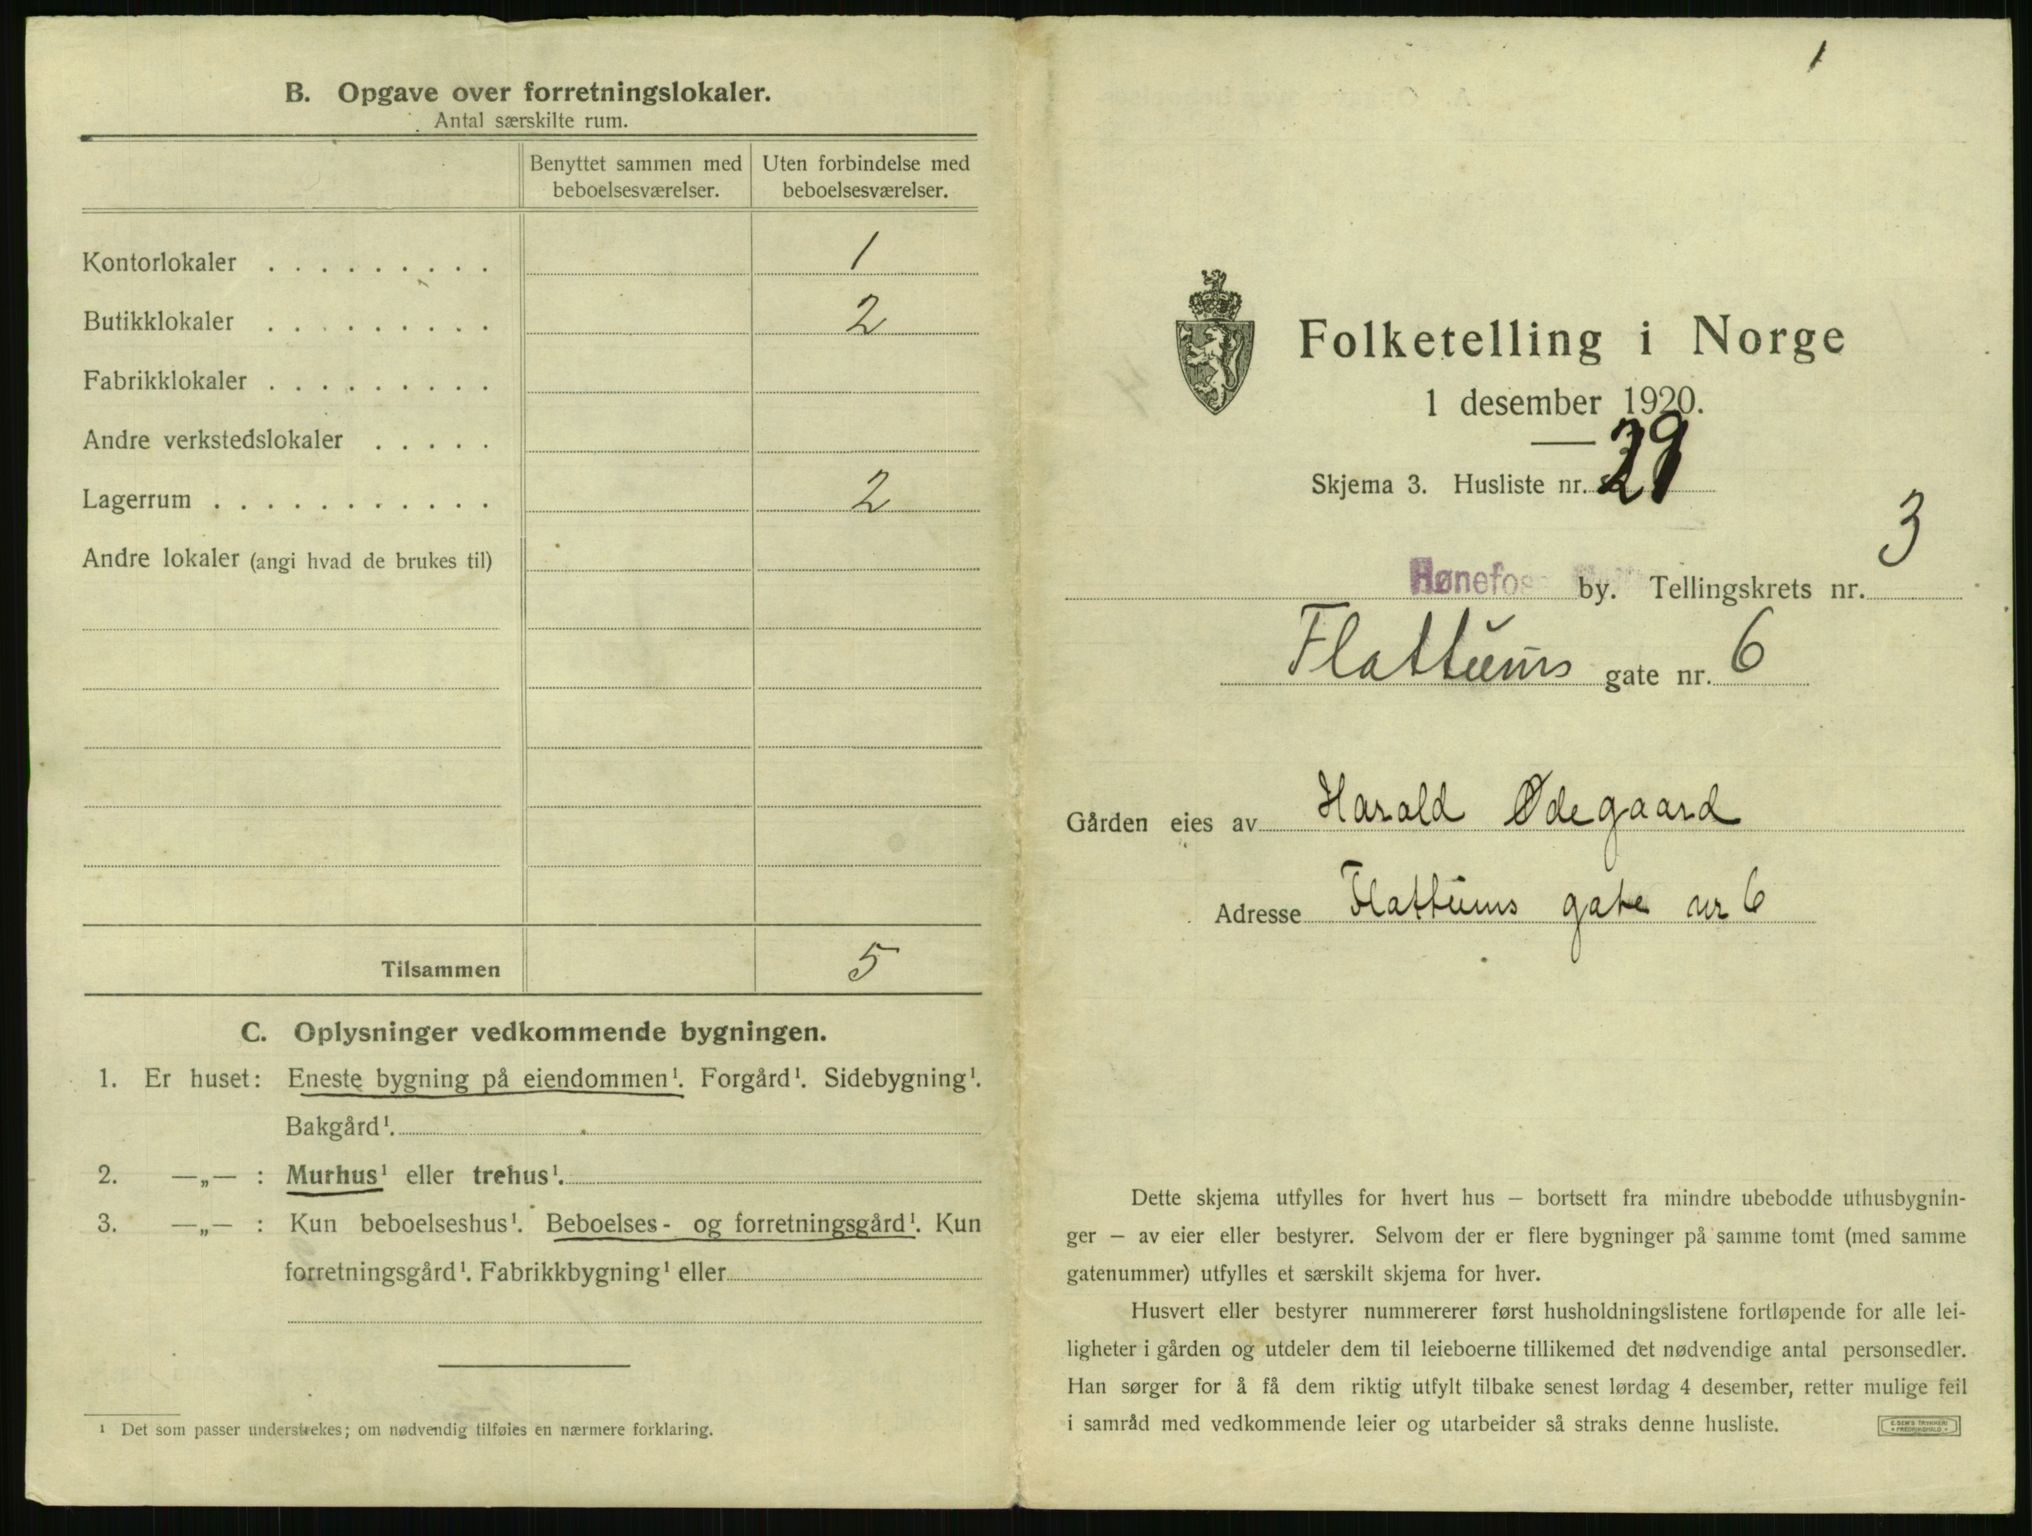 B. Opgave over forretningslokaler.
Antal særskilte rum.
Benyttet sammen med beboelsesværelser.
Uten forbindelse med beboelsesværelser.
Kontorlokaler . . . . . . . . . 1
Butikklokaler . . . . . . . . . 2
Fabrikklokaler . . . . . . . . .
Andre verkstedslokaler . . . . .
Lagerrum . . . . . . . . . . . 2
Andre lokaler (angi hvad de brukes til)
Tilsammen 5
C. Oplysninger vedkommende bygningen.
1. Er huset: Eneste bygning på eiendommen¹. Forgård¹. Sidebygning¹.
Bakgård¹.
2. —„— : Murhus¹ eller trehus¹.
3. —„— : Kun beboelseshus¹. Beboelses- og forretningsgård¹. Kun
forretningsgård¹. Fabrikkbygning¹ eller
¹ Det som passer understrekes; om nødvendig tilføies en nærmere forklaring.
1
Folketelling i Norge
1 desember 1920.
Skjema 3. Husliste nr. 29
Hønefoss by. Tellingskrets nr. 3
Flattums gate nr. 6
Gården eies av Harald Ødegaard
Adresse Flattums gate nr 6
Dette skjema utfylles for hvert hus – bortsett fra mindre ubebodde uthusbygnin-
ger – av eier eller bestyrer. Selvom der er flere bygninger på samme tomt (med samme
gatenummer) utfylles et særskilt skjema for hver.
Husvert eller bestyrer nummererer først husholdningslistene fortløpende for alle lei-
ligheter i gården og utdeler dem til leieboerne tillikemed det nødvendige antal personsedler.
Han sørger for å få dem riktig utfylt tilbake senest lørdag 4 desember, retter mulige feil
i samråd med vedkommende leier og utarbeider så straks denne husliste.
E. SEM'S TRYKKERI
FREDRIKSHALD